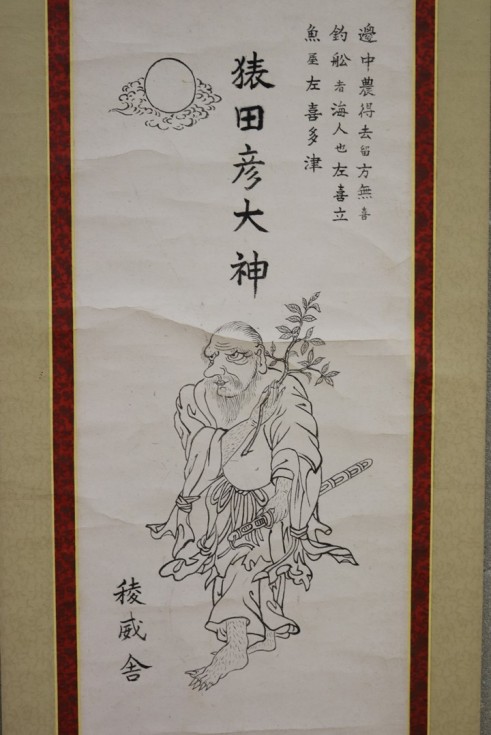 邊中農得去留方無喜
釣舩者海人也左喜立
魚屋左喜多津
猿田彦大神
稜威舎